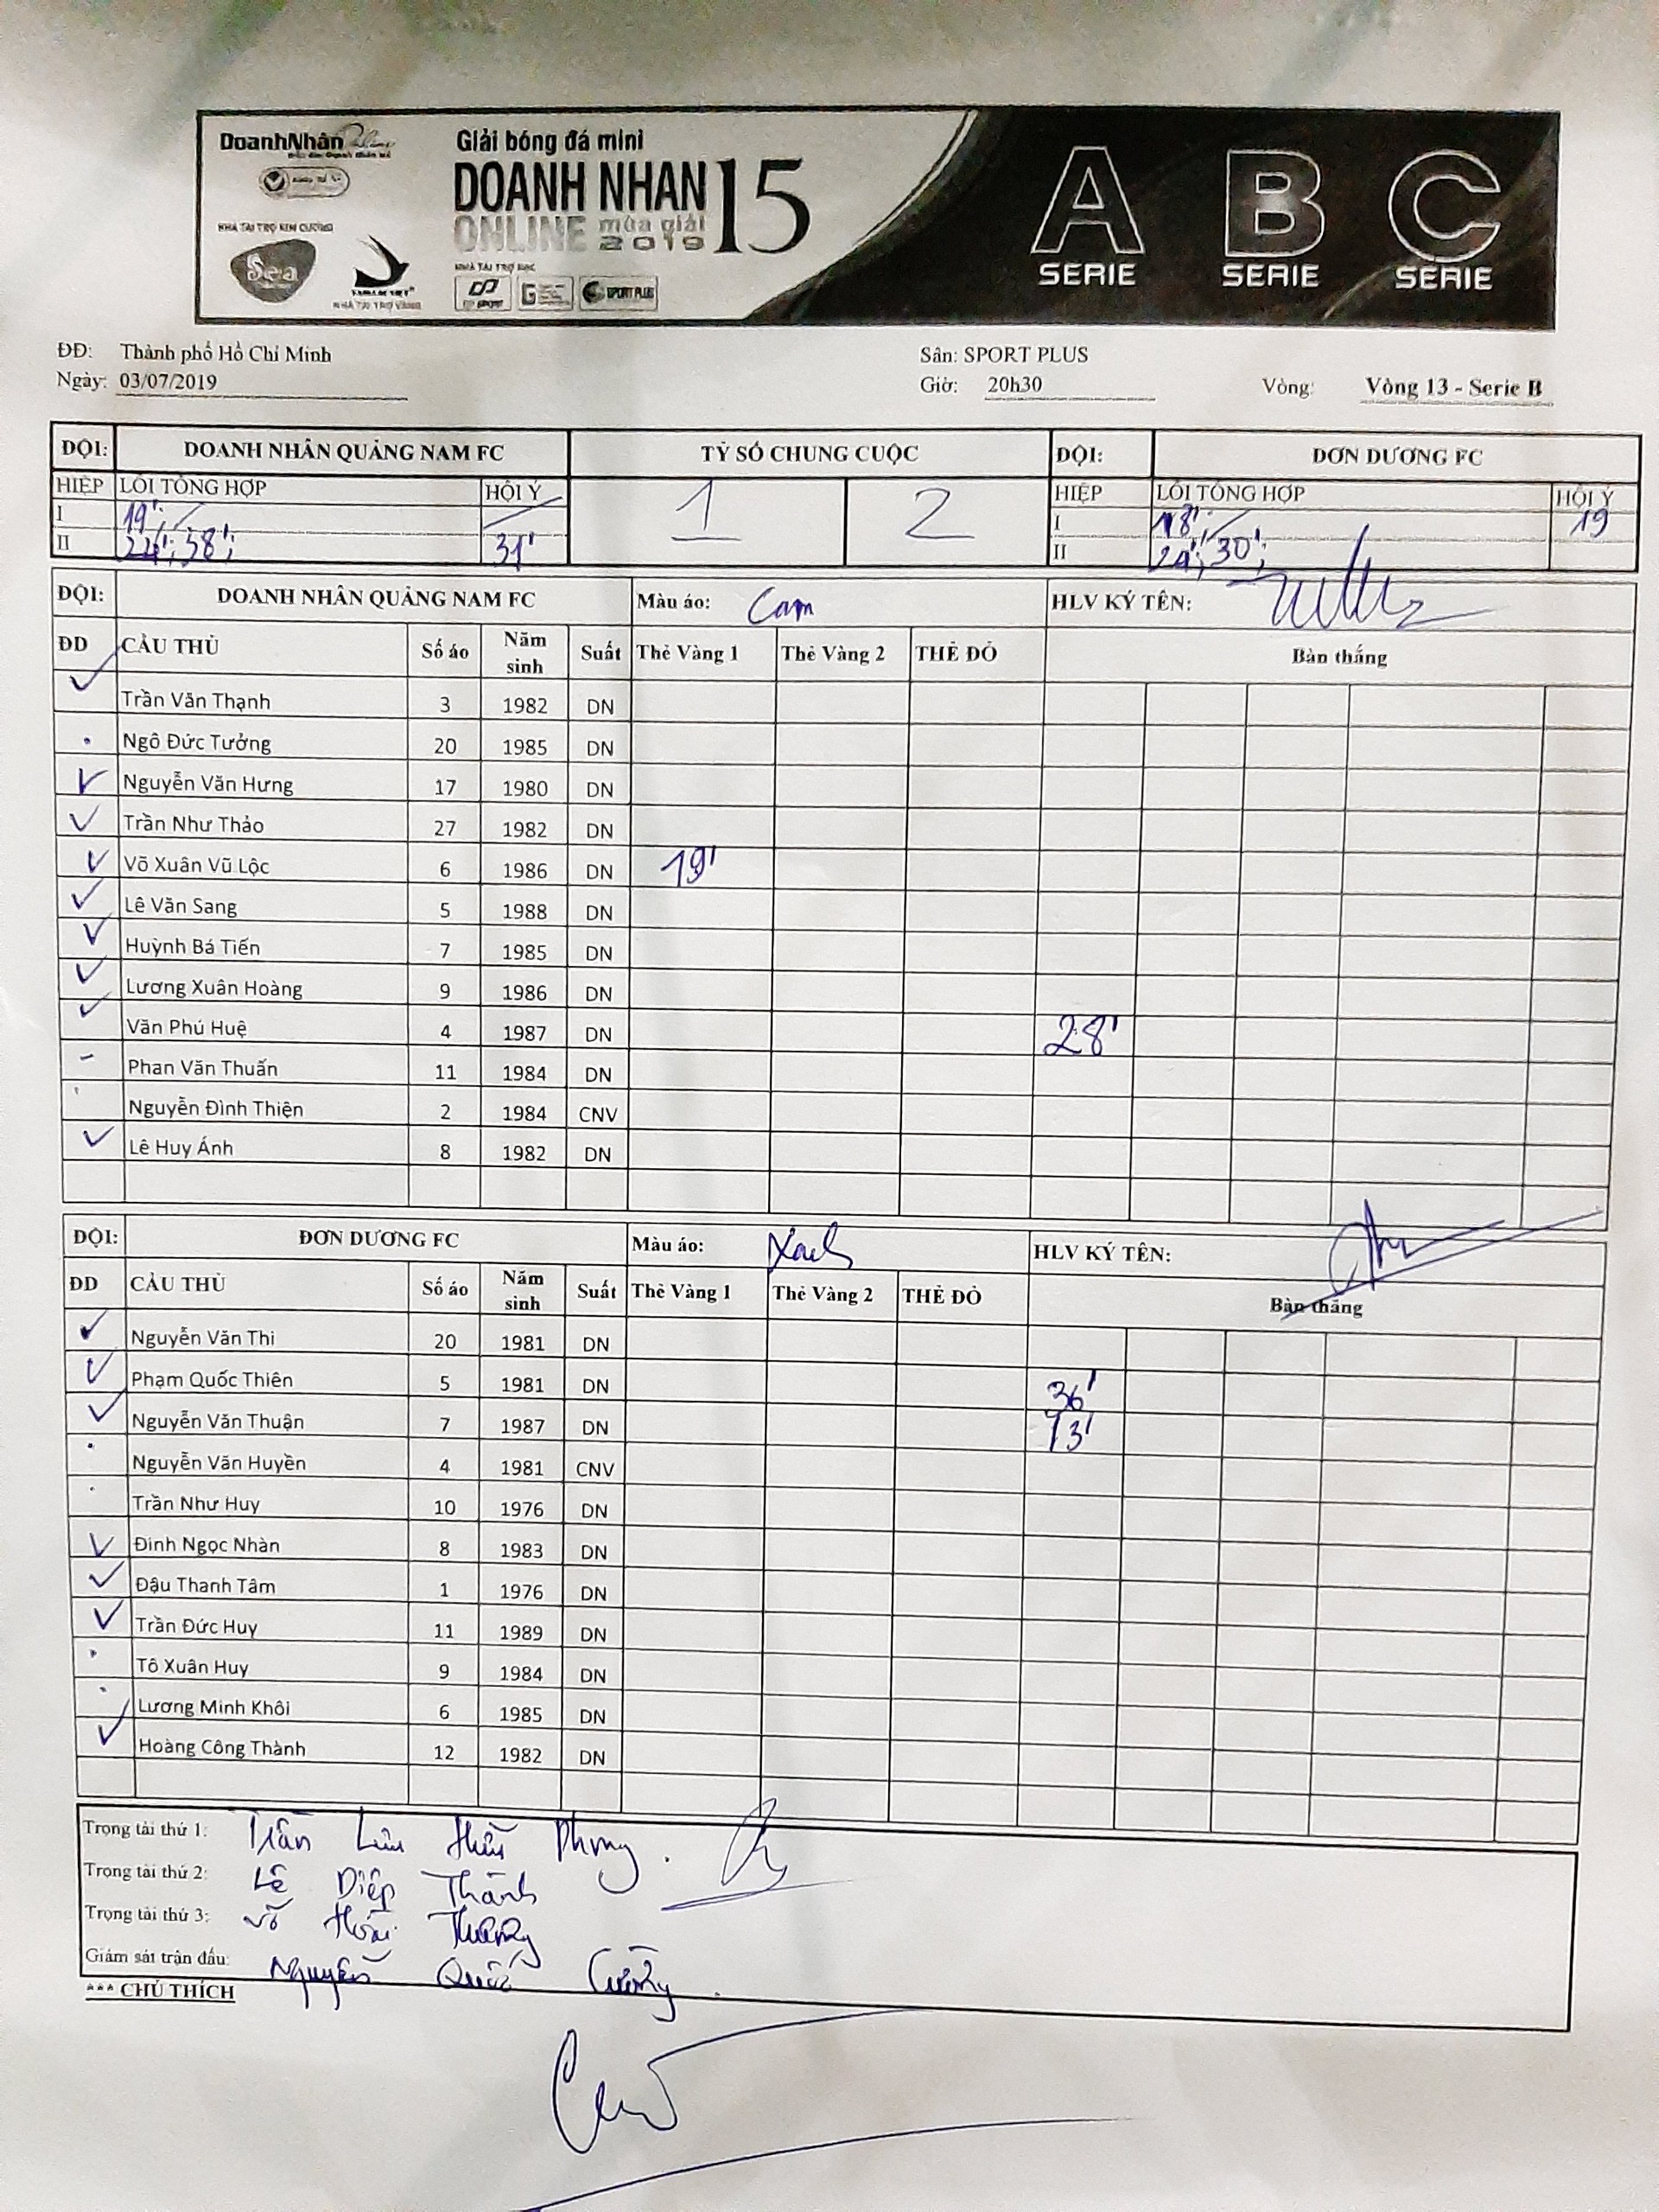 DoanhNhân Online
Giải bóng đá mini
DOANH NHAN 15
ONLINE mùa giải 2019
NHÀ TÀI TRỢ KIM CƯƠNG
Sea
NHÀ TÀI TRỢ VÀNG
NHÀ TÀI TRỢ BẠC
SPORT PLUS
A B C
SERIE SERIE SERIE
ĐĐ: Thành phố Hồ Chí Minh Sân: SPORT PLUS
Ngày: 03/07/2019 Giờ: 20h30 Vòng: Vòng 13 - Serie B
ĐỘI: DOANH NHÂN QUẢNG NAM FC TỶ SỐ CHUNG CUỘC ĐỘI: ĐƠN DƯƠNG FC
HIỆP LỖI TỔNG HỢP HỘI Ý 1 2 HIỆP LỖI TỔNG HỢP HỘI Ý
I 19'; I 18'; 19
II 24'; 38'; 31' II 24'; 30';
ĐỘI: DOANH NHÂN QUẢNG NAM FC Màu áo: Cam HLV KÝ TÊN:
ĐD CẦU THỦ Số áo Năm sinh Suất Thẻ Vàng 1 Thẻ Vàng 2 THẺ ĐỎ Bàn thắng
Trần Văn Thạnh 3 1982 DN
Ngô Đức Tưởng 20 1985 DN
Nguyễn Văn Hưng 17 1980 DN
Trần Như Thảo 27 1982 DN
Võ Xuân Vũ Lộc 6 1986 DN 19'
Lê Văn Sang 5 1988 DN
Huỳnh Bá Tiến 7 1985 DN
Lương Xuân Hoàng 9 1986 DN
Văn Phú Huệ 4 1987 DN 28'
Phan Văn Thuấn 11 1984 DN
Nguyễn Đình Thiện 2 1984 CNV
Lê Huy Ánh 8 1982 DN
ĐỘI: ĐƠN DƯƠNG FC Màu áo: Xanh HLV KÝ TÊN:
ĐD CẦU THỦ Số áo Năm sinh Suất Thẻ Vàng 1 Thẻ Vàng 2 THẺ ĐỎ Bàn thắng
Nguyễn Văn Thi 20 1981 DN
Phạm Quốc Thiên 5 1981 DN 36'
Nguyễn Văn Thuận 7 1987 DN 13'
Nguyễn Văn Huyền 4 1981 CNV
Trần Như Huy 10 1976 DN
Đinh Ngọc Nhàn 8 1983 DN
Đậu Thanh Tâm 1 1976 DN
Trần Đức Huy 11 1989 DN
Tô Xuân Huy 9 1984 DN
Lương Minh Khôi 6 1985 DN
Hoàng Công Thành 12 1982 DN
Trọng tài thứ 1: Trần Lưu Hữu Phong.
Trọng tài thứ 2: Lê Diệp Thành
Trọng tài thứ 3: Võ Hoài Thương
Giám sát trận đấu: Nguyễn Quốc Cường.
*** CHÚ THÍCH